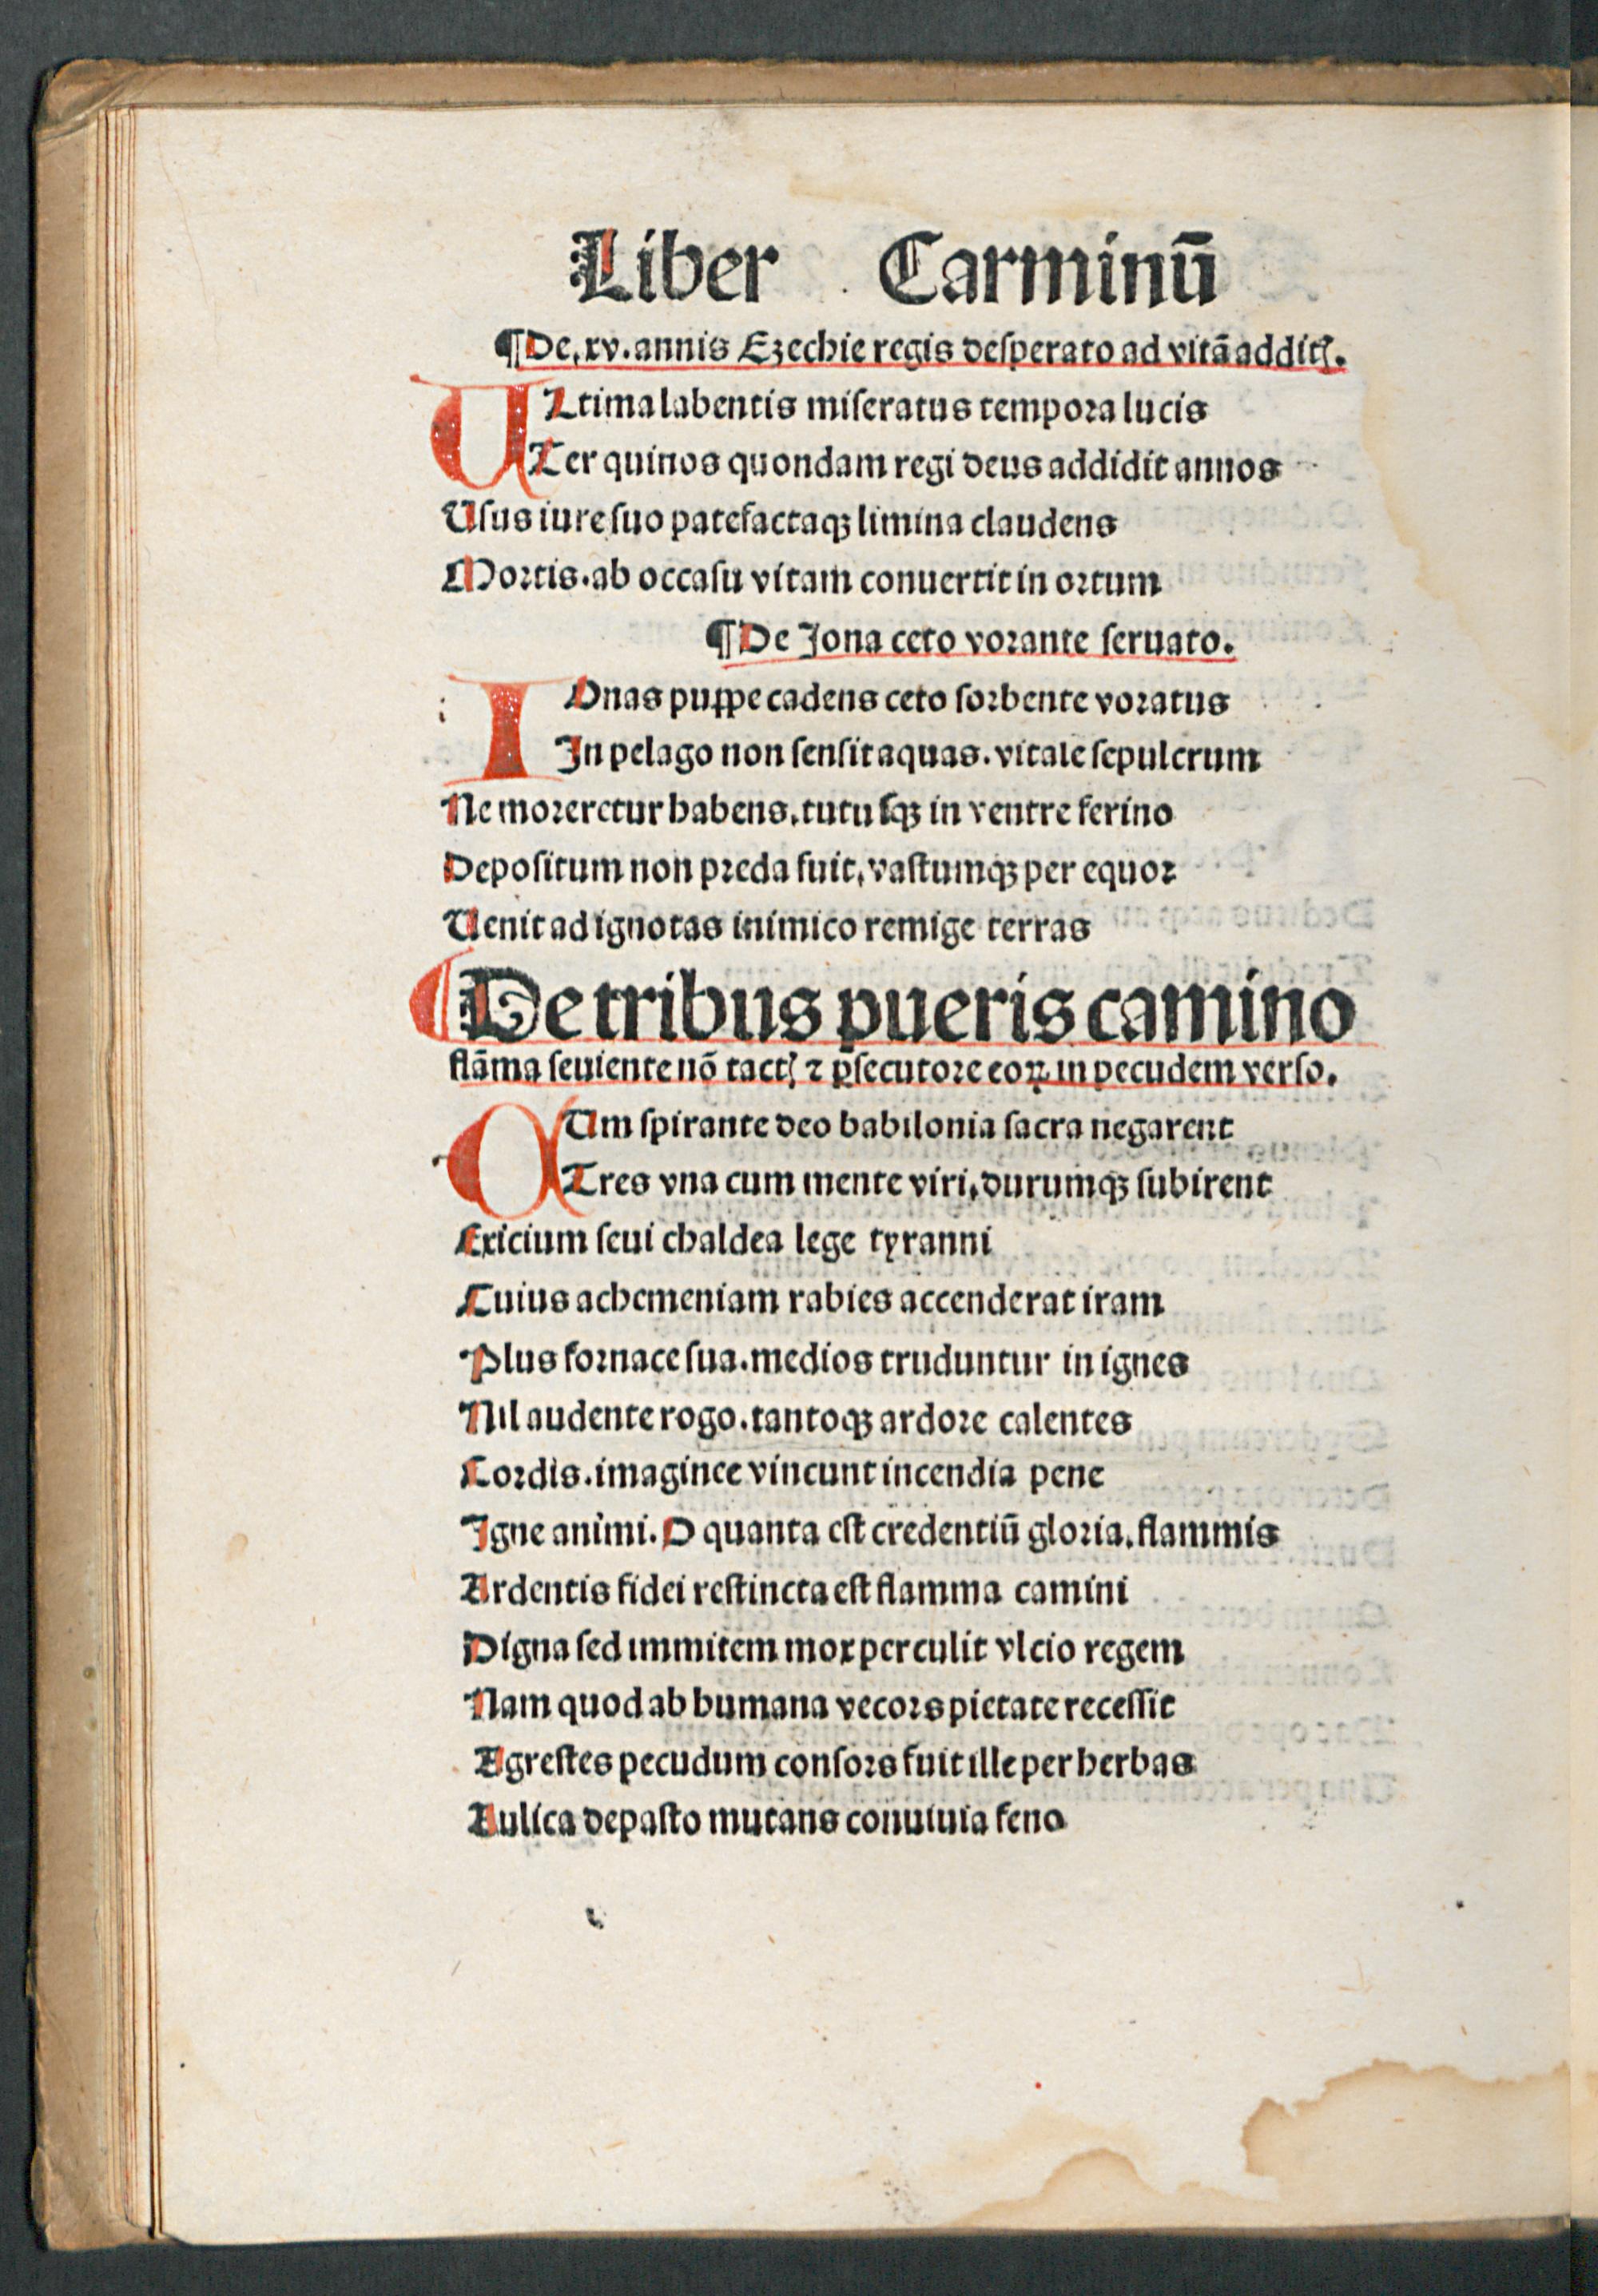 Liber Carminū
¶De.xv.annis Ezechie regis desperato ad vitā additꝭ.
ULtima labentis miseratus tempora lucis
Ter quinos quondam regi deus addidit annos
Usus iure suo patefactaqꝫ limina claudens
Mortis.ab occasu vitam conuertit in ortum
¶De Jona ceto vorante seruato.
IOnas puppe cadens ceto sorbente voratus
In pelago non sensit aquas.vitale sepulcrum
Ne moreretur habens.tutusqꝫ in ventre ferino
Depositum non preda fuit.vastumqꝫ per equor
Uenit ad ignotas inimico remige terras
¶De tribus pueris camino
flāma seuiente nō tactꝭ ⁊ ꝑsecutore eoꝝ in pecudem verso.
CUm spirante deo babilonia sacra negarent
Tres vna cum mente viri.durumqꝫ subirent
Exicium seui chaldea lege tyranni
Cuius achemeniam rabies accenderat iram
Plus fornace sua.medios truduntur in ignes
Nil audente rogo.tantoqꝫ ardore calentes
Cordis.imaginee vincunt incendia pene
Igne animi.O quanta est credentiū gloria.flammis
Ardentis fidei restincta est flamma camini
Digna sed immitem mox perculit vlcio regem
Nam quod ab humana vecors pietate recessit
Agrestes pecudum consors fuit ille per herbas
Aulica depasto mutans conuiuia feno